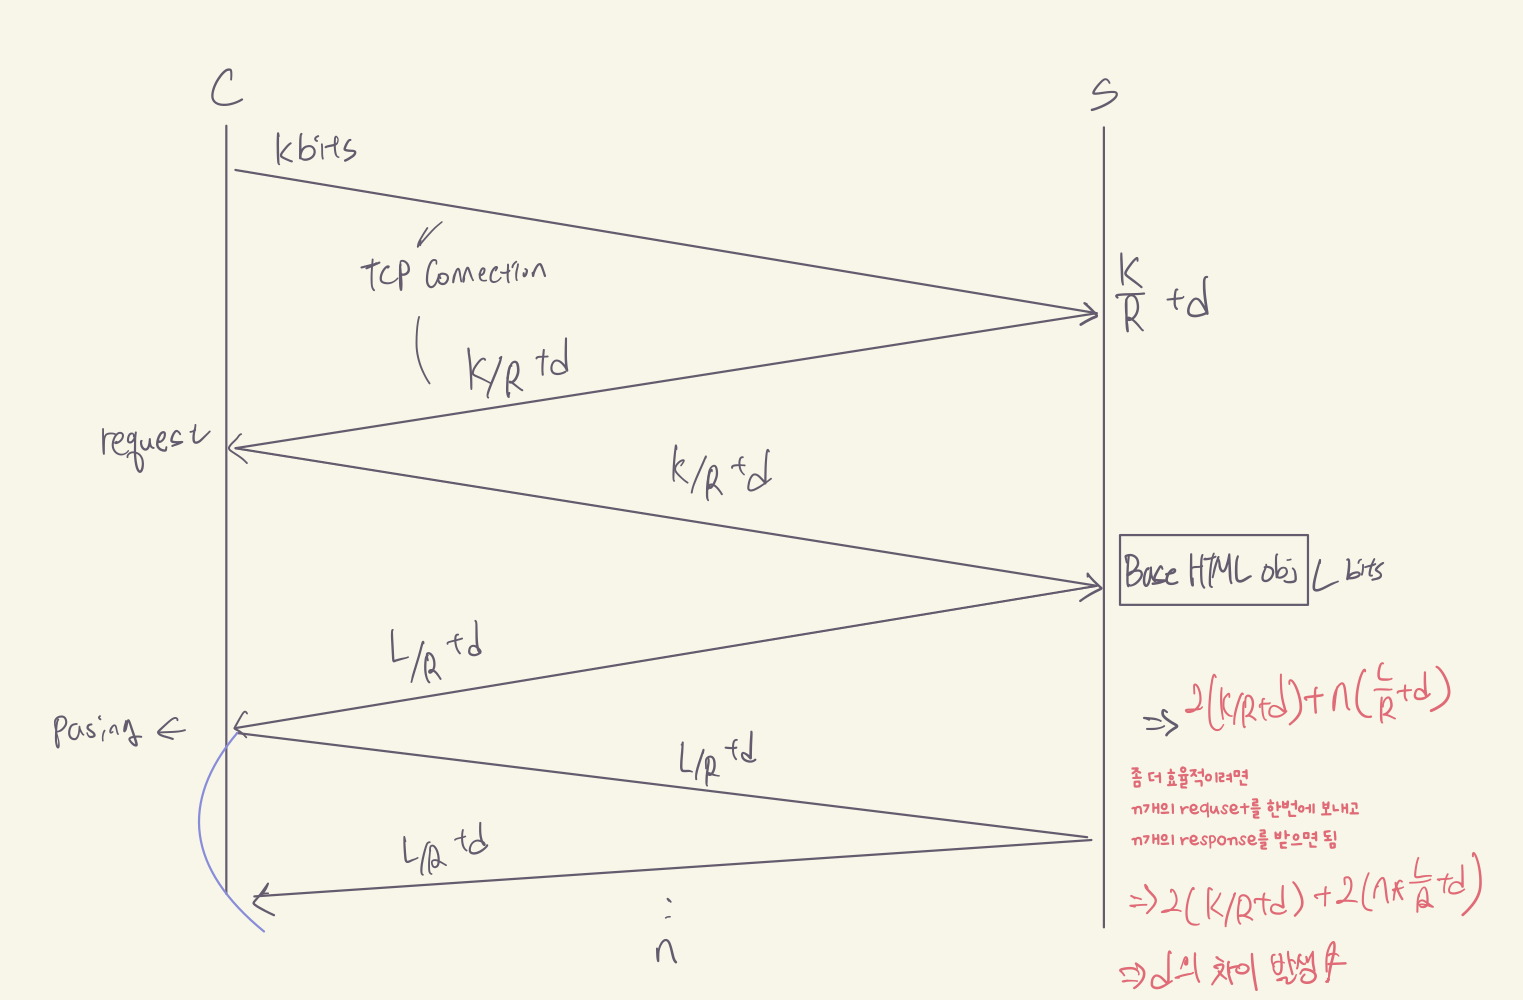 C
S
K bits
TCP Connection
K/R + d
K/R + d
request
K/R + d
Base HTML obj L bits
L/R + d
Pasing ←
L/R + d
L/R + d
⋮
n
⇒ 2(K/R+d) + n(L/R+d)
좀 더 효율적이려면
n개의 requset를 한번에 보내고
n개의 response를 받으면 됨
⇒ 2(K/R+d) + 2(n*L/R+d)
⇒ d의 차이 발생